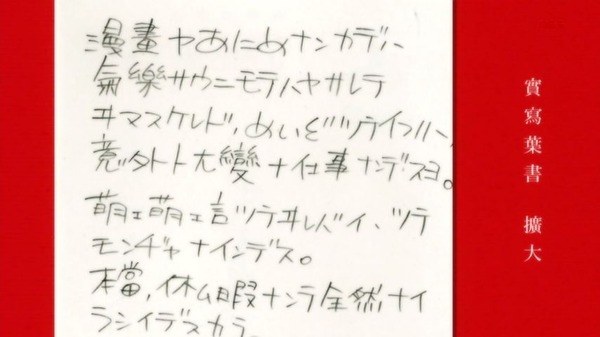 漫畫ヤあにめナンカデハ
氣樂サウニモテハヤサレテ
ヰマスケレド、ライフハ、
意外ト大變ナ仕事ナンデスヨ。
萌エ萌エ言ツテヰレバイヽツテ
モンヂャナインデス。
本當,休ム暇ナンテ全然ナイ
ラシイデスカラ。
實寫葉書 擴大